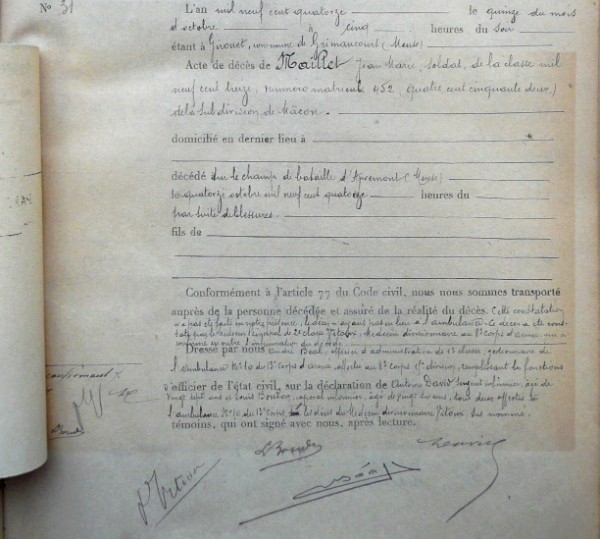 N° 31
L'an mil neuf cent quatorze le quinze du mois
d'octobre à cinq heures du soir
étant à Gironet, commune de Grimaucourt (Meuse)
Acte de décès de Maillet Jean Marie, soldat, de la classe mil
neuf cent treize, numéro matricule 452, quatre cent cinquante deux)
de la subdivision de Mâcon.
domicilié en dernier lieu à
décédé sur le champ de bataille d'Apremont (Meuse)
le quatorze octobre mil neuf cent quatorze heures du
par suite de blessures.
fils de
Conformément à l'article 77 du Code civil, nous nous sommes transporté
auprès de la personne décédée et assuré de la réalité du décès. Cette constatation
n'a pas été faite en notre présence, le décès n'ayant pas eu lieu à l'ambulance. Ce décès a été cons-
taté par le médecin de 2e classe Vitoux, médecin divisionnaire au 8e corps d'armée
Dressé par nous André Béal, officier d'administration de classe, gestionnaire de
l'ambulance N° 10 du 13e Corps d'armée, affectée au 8e Corps division, remplissant les fonctions
d'officier de l'état civil, sur la déclaration de Antoine David Sergent infirmier, âgé de
vingt sept ans et Louis caporal infirmier, âgé de vingt six ans, tous deux affectés à
l'ambulance N° 10 du 13e Corps, du Médecin divisionnaire Vitoux sus nommé.
témoins, qui ont signé avec nous, après lecture.